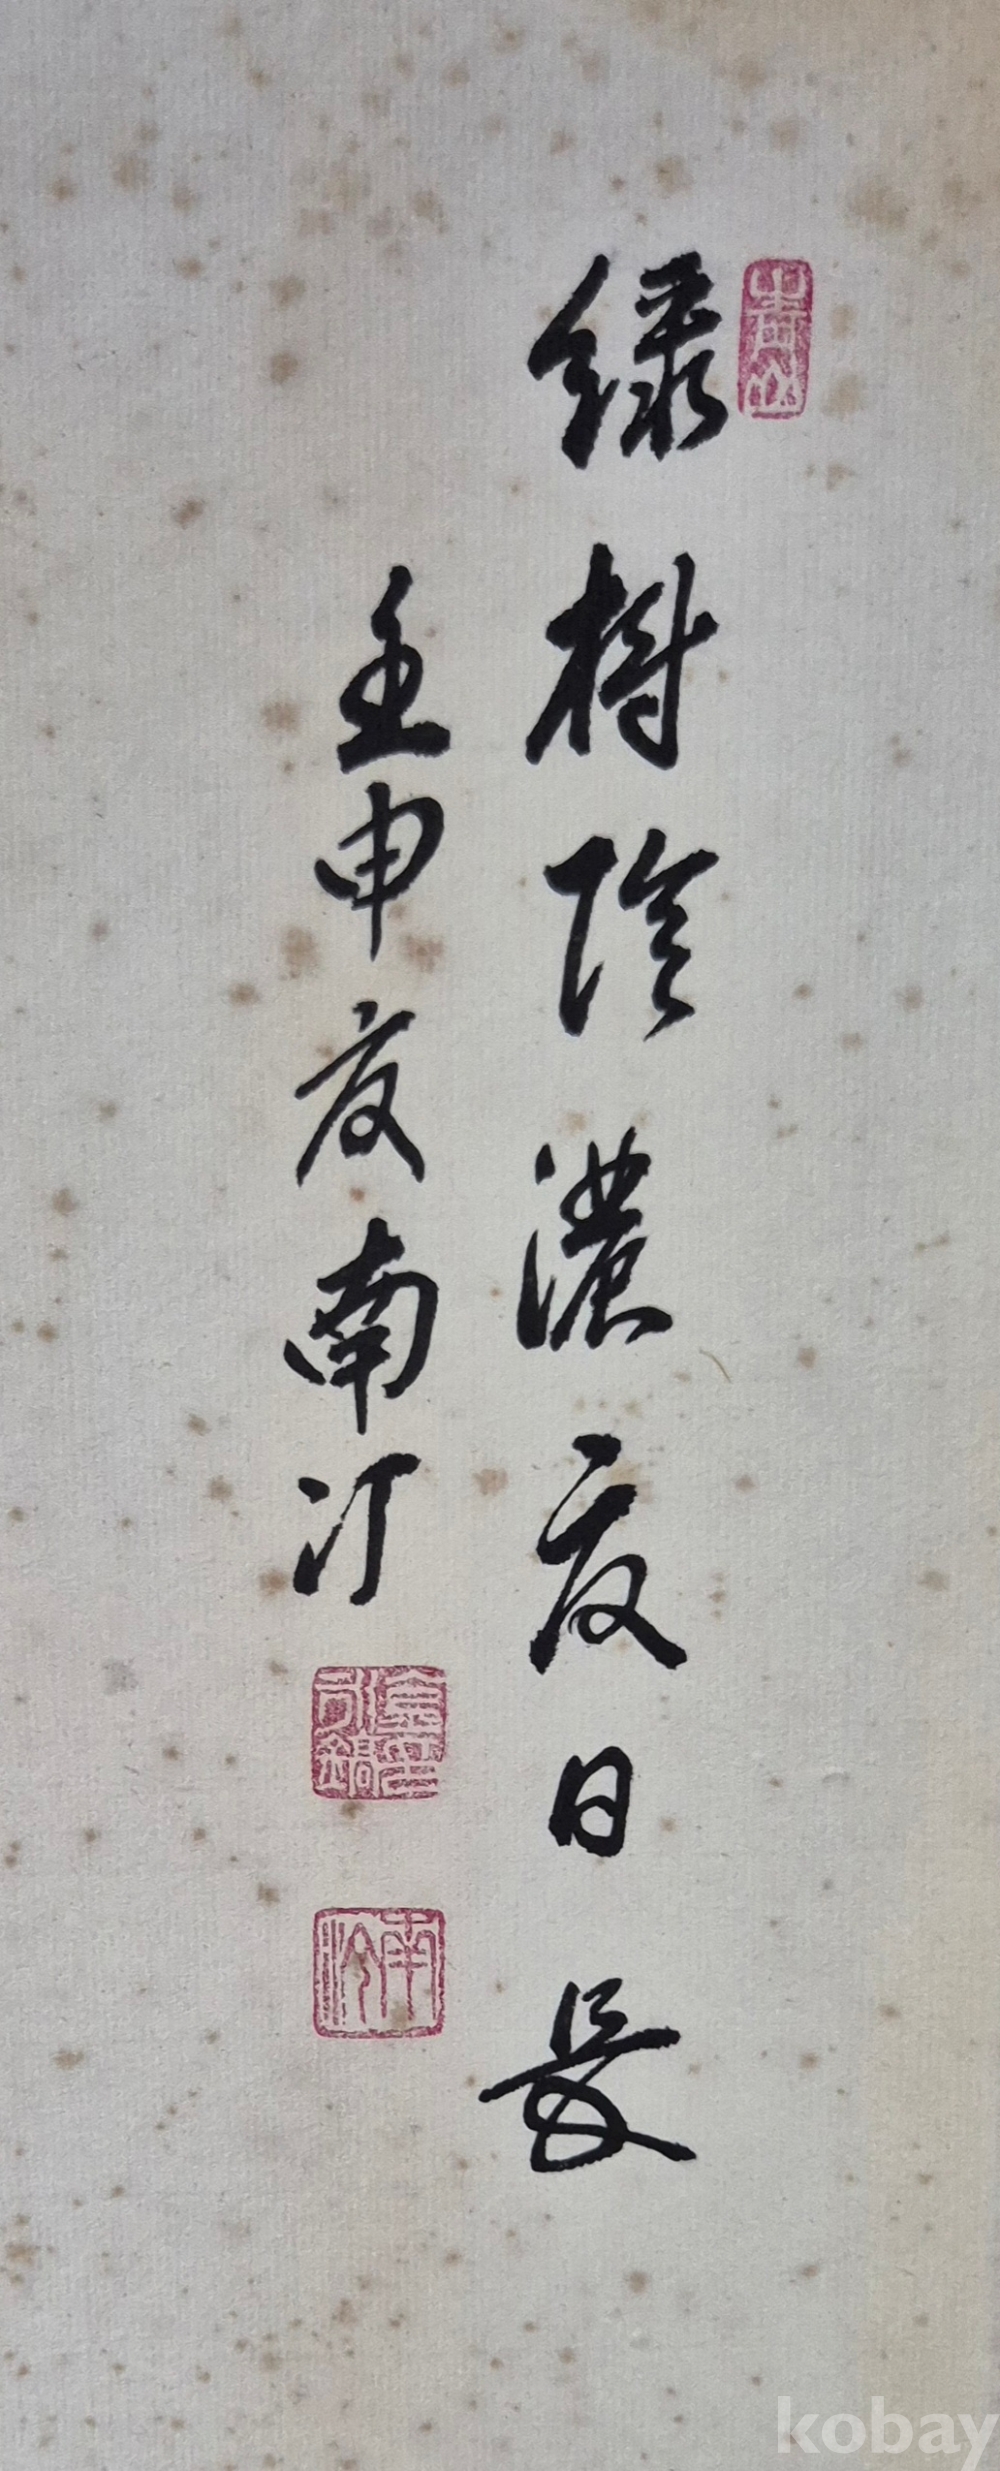 綠樹陰濃夏日長
壬申夏南汀
kobay